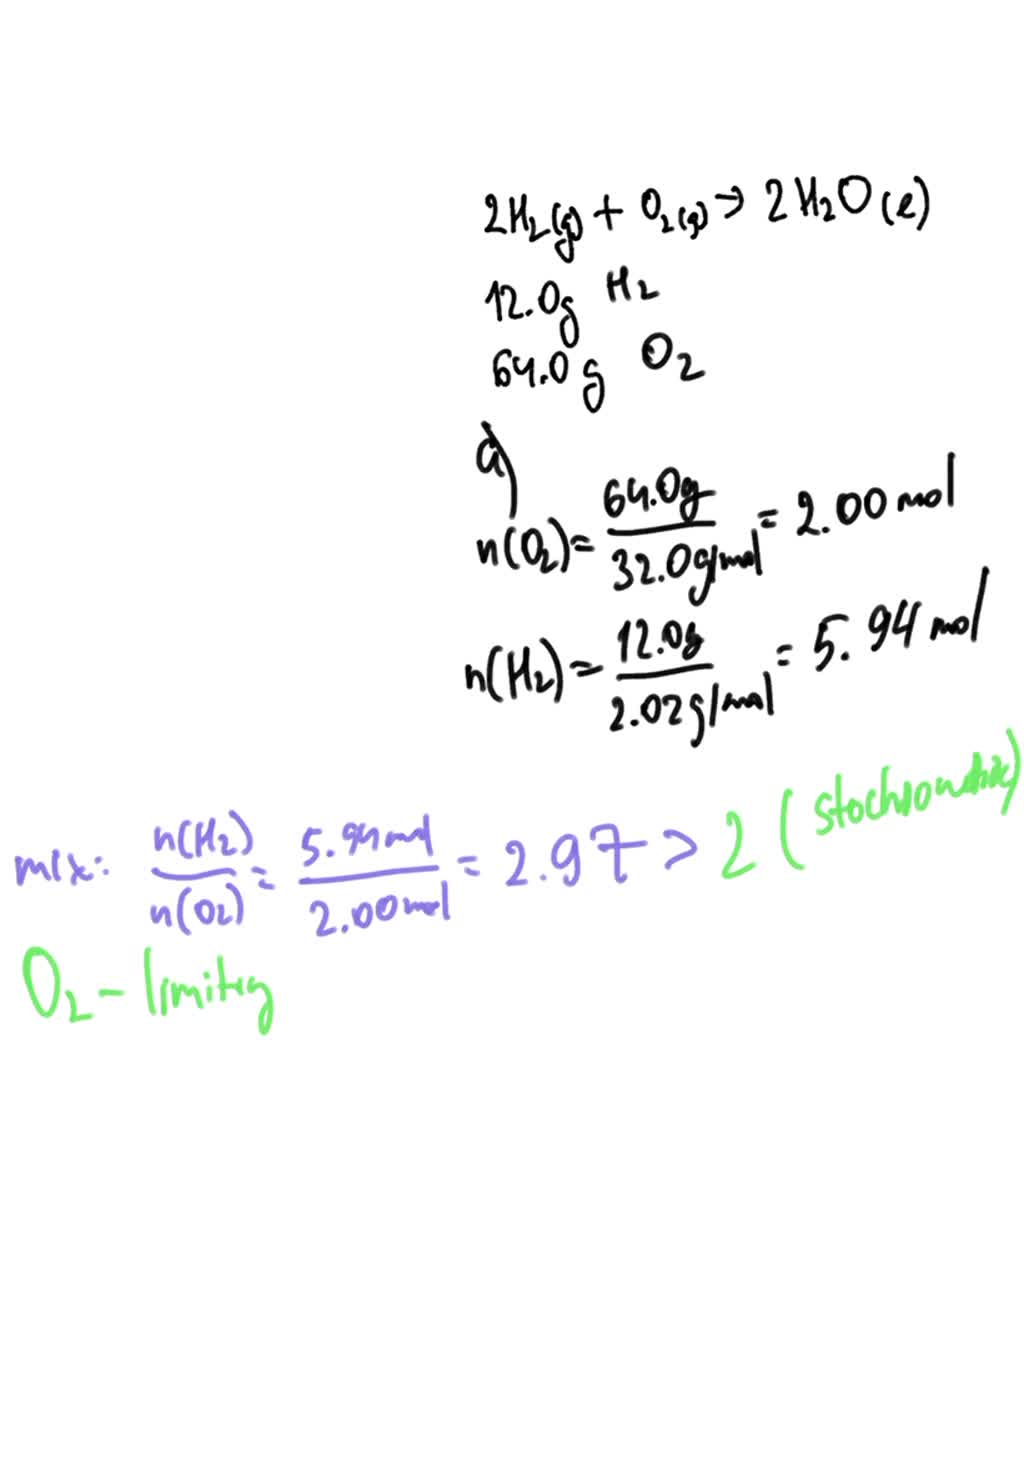 2H₂(g) + O₂(g) → 2H₂O(l)
12.0g H₂
64.0g O₂
a)
n(O₂) = 64.0g / 32.0g/mol = 2.00 mol
n(H₂) = 12.0g / 2.02g/mol = 5.94 mol
mix: n(H₂) / n(O₂) = 5.94mol / 2.00mol = 2.97 > 2 (
O₂ - limiting